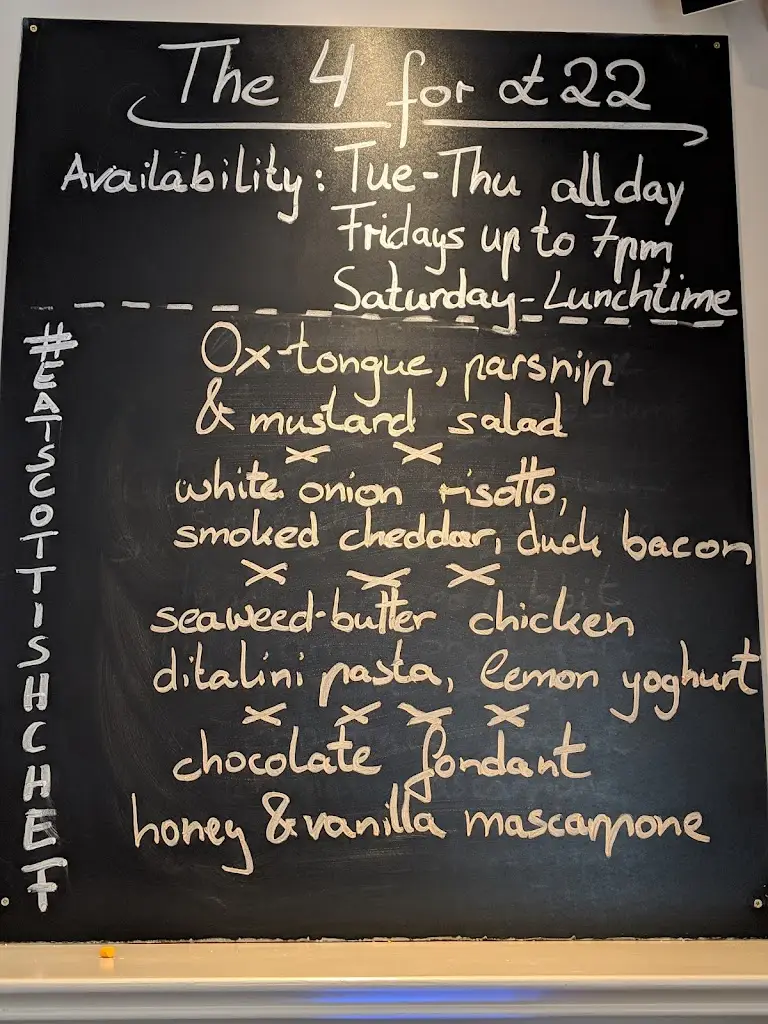 The 4 for £22
Availability: Tue-Thu all day
Fridays up to 7pm
Saturday-Lunchtime
#EATSCOTTISHCHEF
Ox-tongue, parsnip
& mustard salad
x x
white onion risotto,
smoked cheddar, duck bacon
x x x
seaweed-butter chicken
ditalini pasta, lemon yoghurt
x x x x
chocolate fondant
honey & vanilla mascarpone